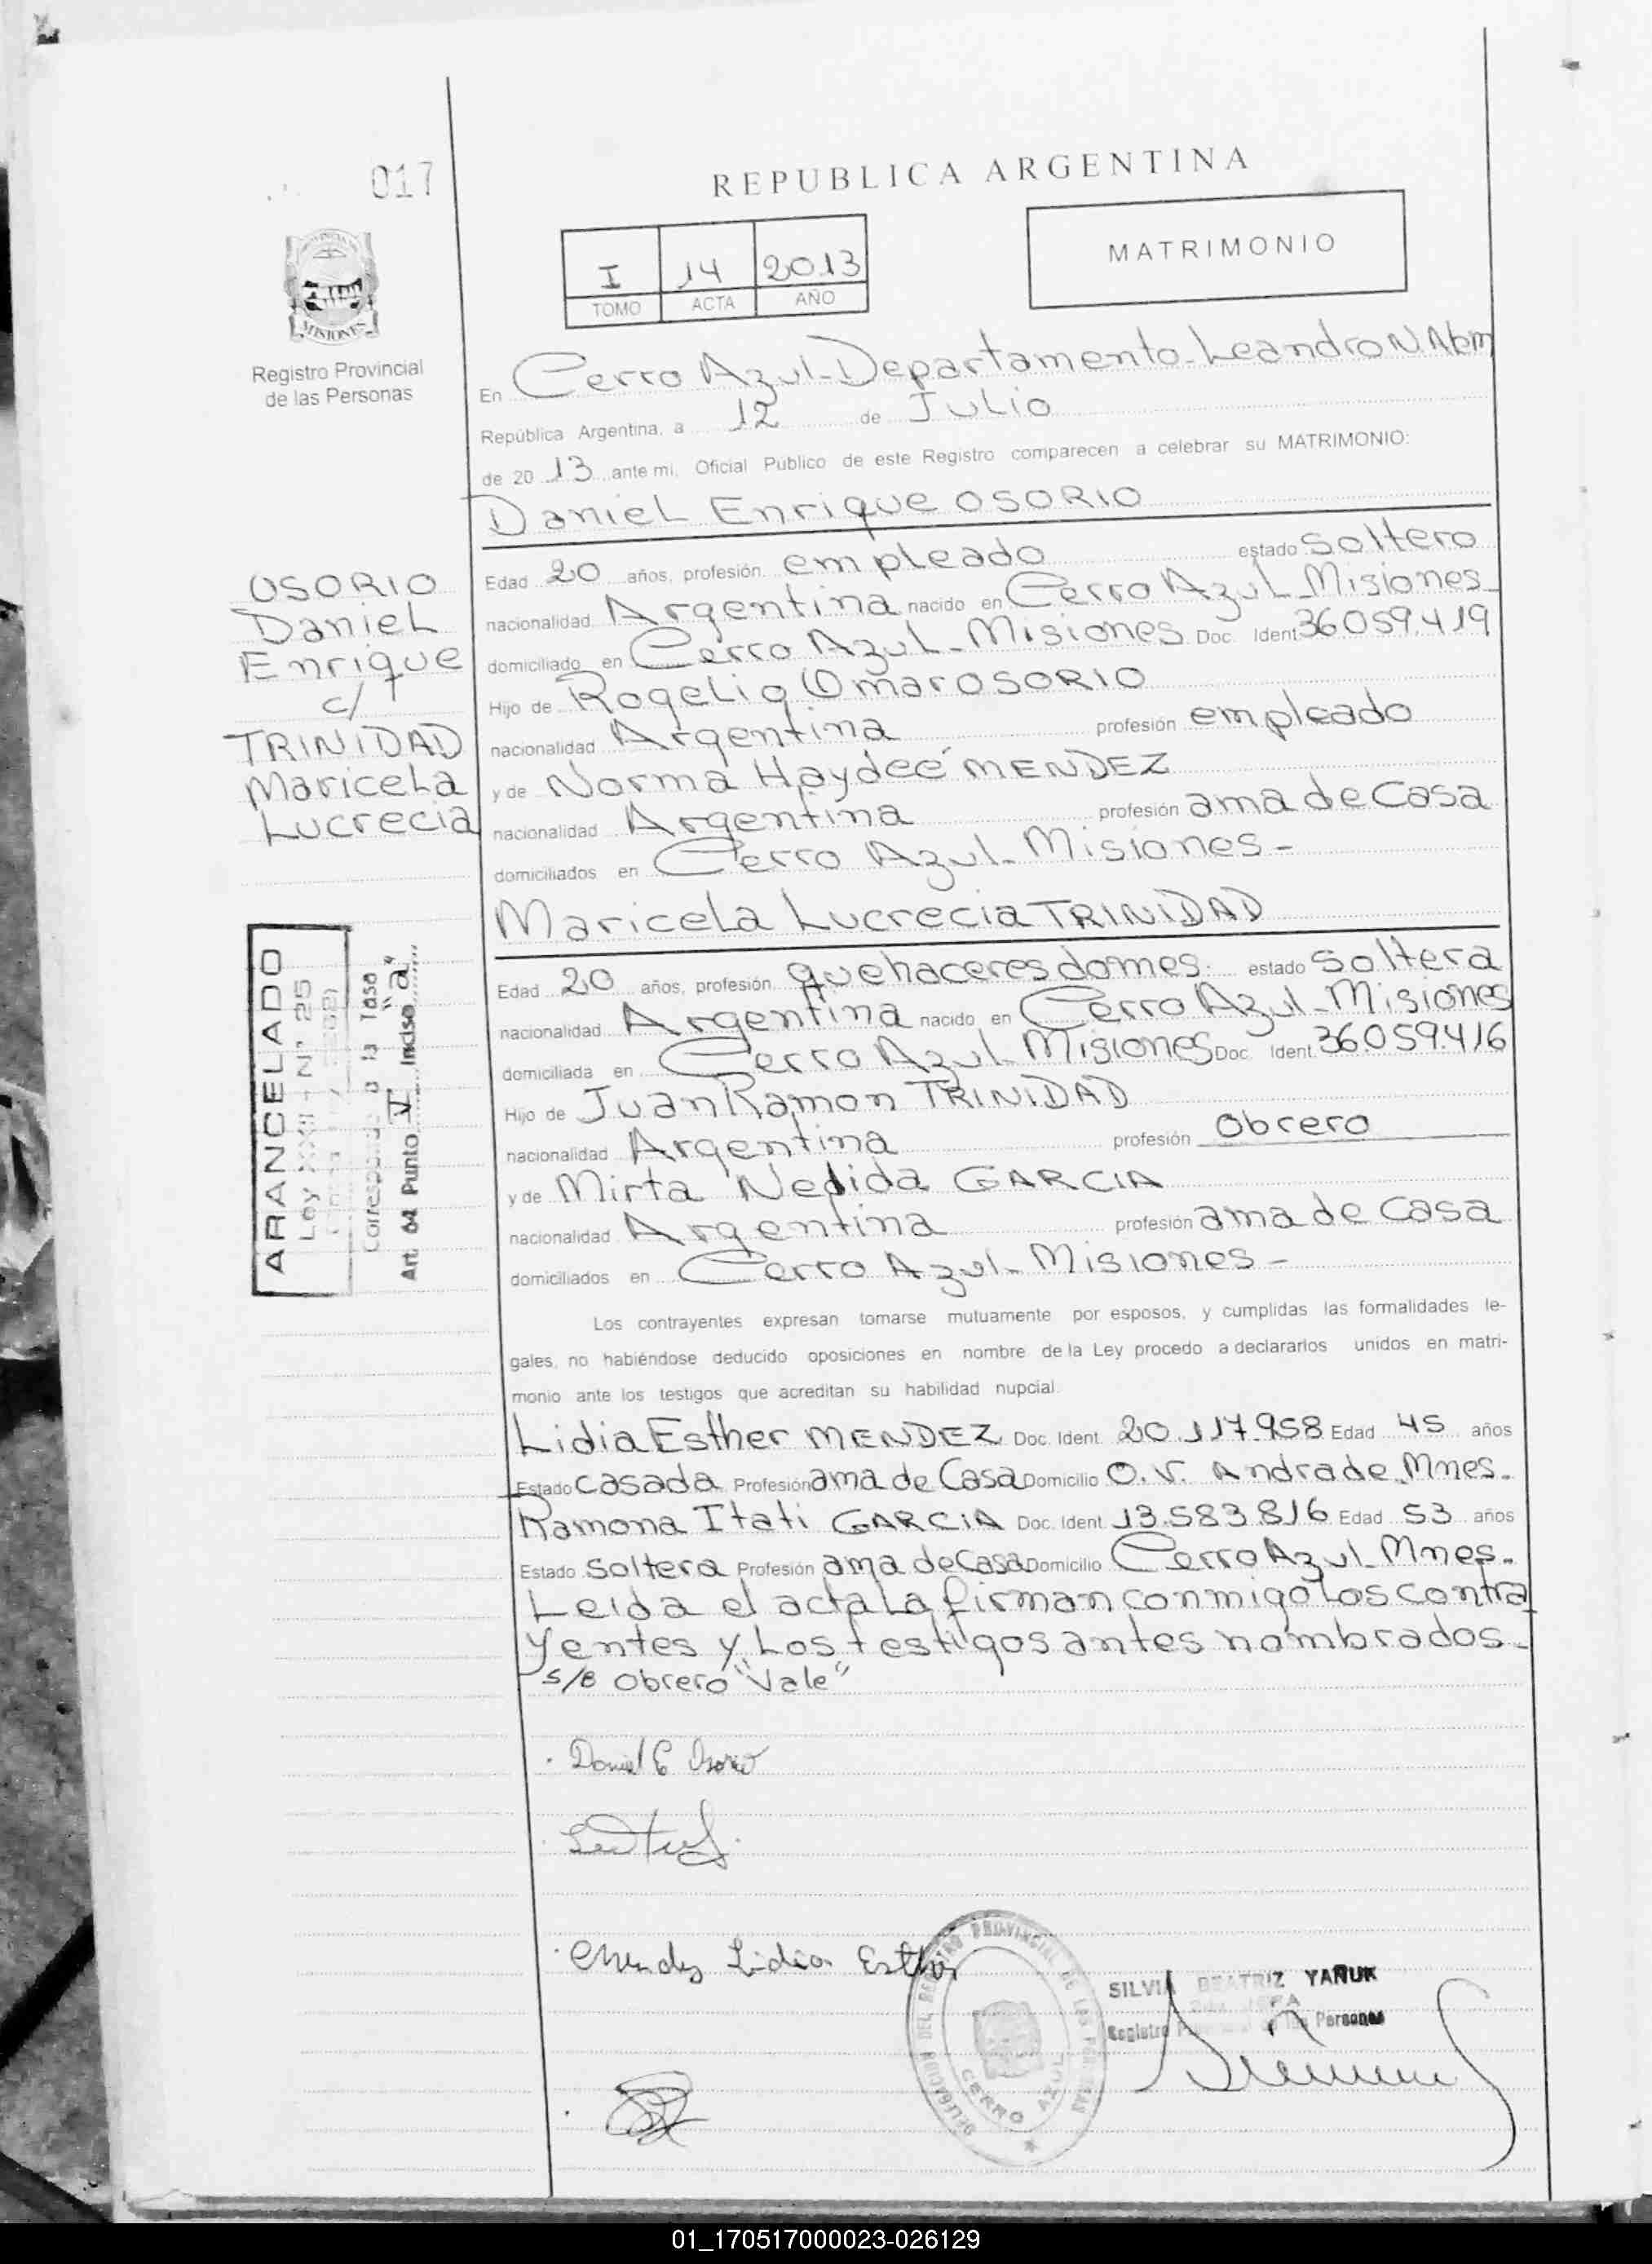 017
REPUBLICA ARGENTINA
I 14 2013
TOMO ACTA AÑO
MATRIMONIO
MISIONES
Registro Provincial
de las Personas
En Cerro Azul-Departamento-Leandro N. Alem
República Argentina, a 12 de Julio
de 20 13 ante mi, Oficial Público de este Registro comparecen a celebrar su MATRIMONIO:
Daniel Enrique OSORIO
Edad 20 años, profesión empleado estado Soltero
nacionalidad Argentina nacido en Cerro Azul-Misiones-
domiciliado en Cerro Azul-Misiones Doc. Ident 36.059.419
Hijo de Rogelio Omar OSORIO
nacionalidad Argentina profesión empleado
y de Norma Haydeé MENDEZ
nacionalidad Argentina profesión ama de Casa
domiciliados en Cerro Azul-Misiones-
OSORIO
Daniel
Enrique
c/
TRINIDAD
Maricela
Lucrecia
Maricela Lucrecia TRINIDAD
Edad 20 años, profesión quehaceres domes. estado Soltera
nacionalidad Argentina nacido en Cerro Azul-Misiones
domiciliada en Cerro Azul-Misiones Doc. Ident. 36.059.416
Hijo de Juan Ramon TRINIDAD
nacionalidad Argentina profesión Obrero
y de Mirta Nelida GARCIA
nacionalidad Argentina profesión ama de Casa
domiciliados en Cerro Azul-Misiones-
ARANCELADO
Ley XXII - Nº 25
Corresponde a la Tasa
Art. 64 Punto V Inciso "a"
Los contrayentes expresan tomarse mutuamente por esposos, y cumplidas las formalidades le-
gales, no habiéndose deducido oposiciones en nombre de la Ley procedo a declararlos unidos en matri-
monio ante los testigos que acreditan su habilidad nupcial.
Lidia Esther MENDEZ Doc. Ident. 20.117.958 Edad 45 años
Estado Casada Profesión ama de Casa Domicilio O. V. Andrade Mnes.
Ramona Itati GARCIA Doc. Ident 13.583.816 Edad 53 años
Estado Soltera Profesión ama de Casa Domicilio Cerro Azul-Mnes.
Leida el acta La firman conmigo Los contra
yentes y Los testigos antes nombrados-
s/B Obrero "Vale"
Daniel E Osorio
Mendez Lidia Esther
DELEGACION DEL REGISTRO PROVINCIAL DE LAS PERSONAS
CERRO AZUL
SILVIA BEATRIZ YAÑUK
JEFA
Registro Provincial de las Personas
01_170517000023-026129